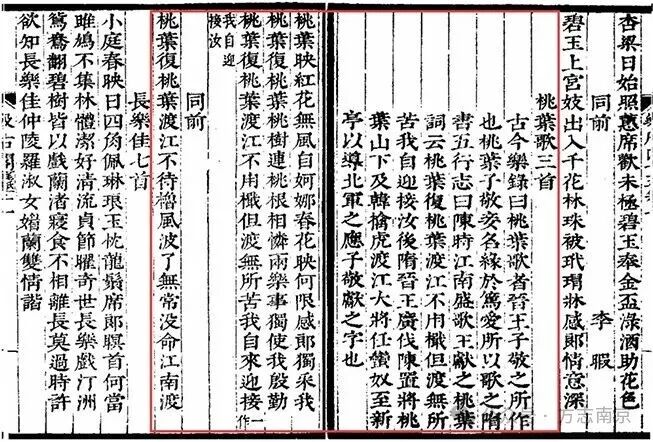 杏梁日始照蕙席歡未極碧玉奉金盃淥酒助花色
同前 李暇
碧玉上宮妓出入千花林珠被玳瑁牀感郎情意深
桃葉歌三首
古今樂錄曰桃葉歌者晉王子敬之所作
也桃葉子敬妾名緣於篤愛所以歌之隋
書五行志曰陳時江南盛歌王獻之桃葉
詞云桃葉復桃葉渡江不用檝但渡無所
苦我自迎接汝後隋晉王廣伐陳置將桃
葉山下及韓擒虎渡江大將任蠻奴至新
亭以導北軍之應子敬獻之字也
桃葉映紅花無風自婀娜春花映何限感郎獨采我
桃葉復桃葉桃樹連桃根相憐兩樂事獨使我殷勤
桃葉復桃葉渡江不用檝但渡無所苦我自來迎接一作
我自迎接汝
同前
桃葉復桃葉渡江不待櫓風波了無常没命江南渡
長樂佳七首
小庭春映日四角佩琳琅玉枕龍鬚席郎瞑首何當
雎鳩不集林體潔好清流貞節曜奇世長樂戲汀洲
鴛鴦翻碧樹皆以戲蘭渚寢食不相離長莫過時許
欲知長樂佳仲陵羅淑女媚蘭雙情諧
汲古閣
公众号 · 方志南京